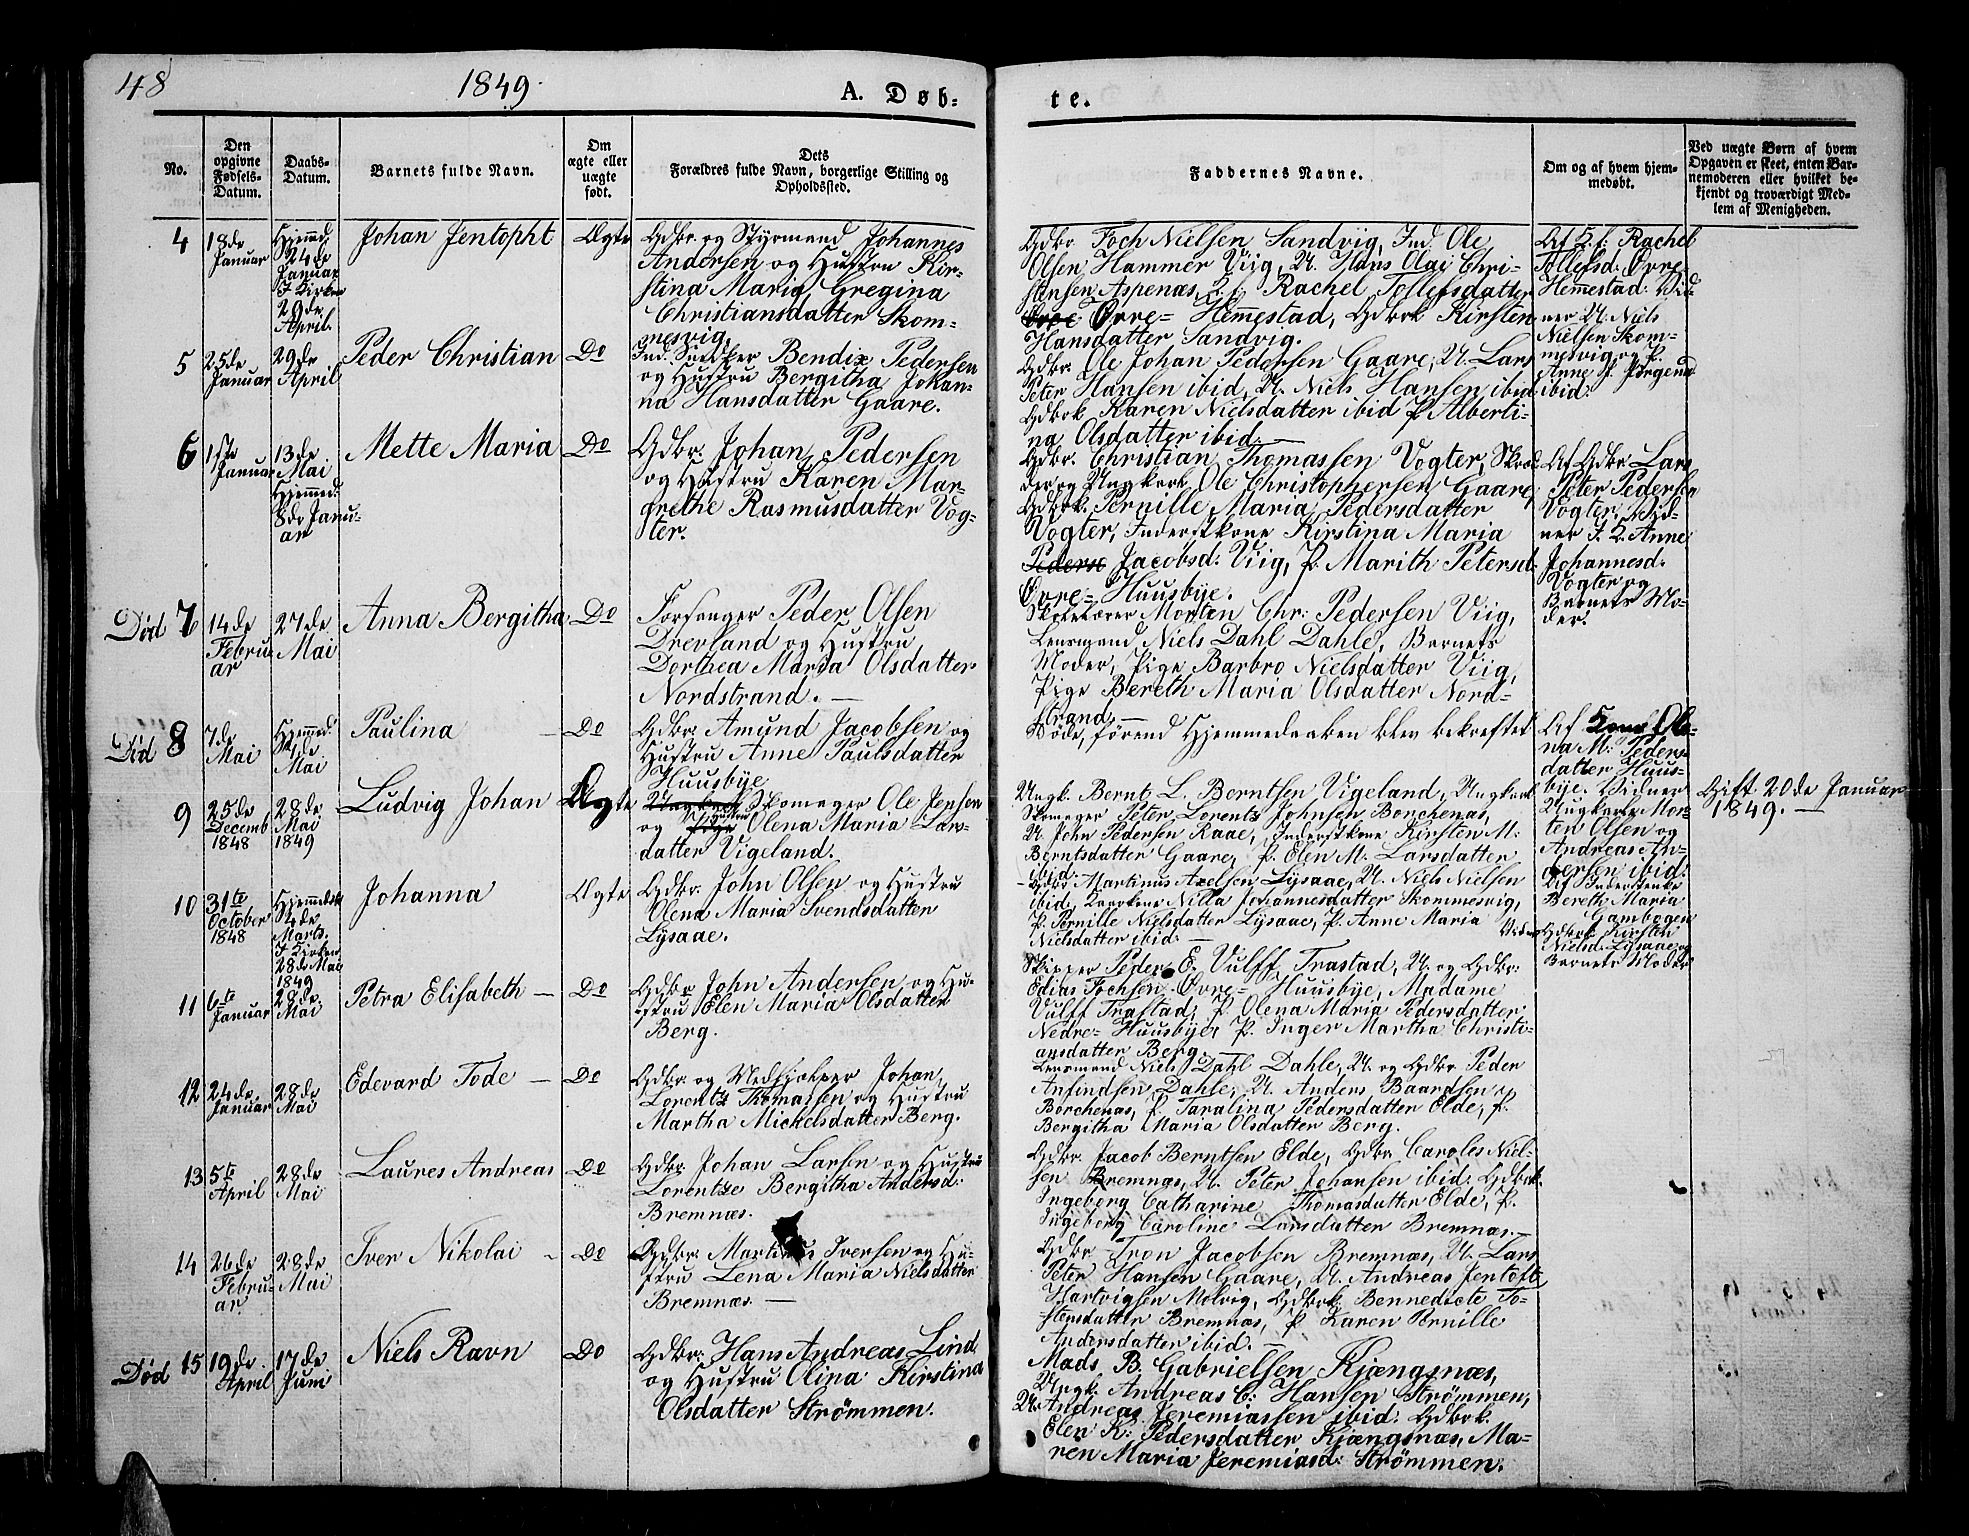 48
1849.
A. Døb-
te.
No.
Den
opgivne
Fødsels-
Datum.
Daabs-
Datum.
Barnets fulde Navn.
Om
ægte eller
uægte
født.
Dets
Forældres fulde Navn, borgerlige Stilling og
Opholdssted.
Faddernes Navne.
Om og af hvem hjem-
medøbt.
Ved uægte Børn af hvem
Opgaven er skeet, enten Bar-
nemoderen eller hvilket be-
kjendt og troværdigt Med-
lem af Menigheden.
4
18de
Januar
Hjemmed.
24de
Januar
I Kirken
29de
April.
Johan Jentopht
Ægte
Gdbr. og Styrmand Johannes
Andersen og Hustru Kir-
stina Maria Gregina
Christiansdatter Skom-
mesvig.
Gdbr. Foch Nielsen Sandvig, Ind. Ole
Olsen Hammer Viig, U. Hans Olai Chri-
stensen Aspenæs, Rachel Tollefsdatter
Øvre= Hemmestad, Gdbrk Kirsten
Hansdatter Sandvig.
Af Rachel
Tollefsd: Øvre
Hemmestad: Vid-
ner U. Niels
Nielsen Skom-
mesvig og P.
Anne
ibid:
5
25de
Januar
29de
April
Peder Christian
Do
Ind. Snedker Bendix Pedersen
og Hustru Bergitha Johan-
na Hansdatter Gaare.
Gdbr. Ole Johan Pedersen Gaare, U. Lars
Peter Hansen ibid, U. Niels Hansen ibid
Gdbrk Karen Nielsdatter ibid P. Alberti-
na Olsdatter ibid:
6
1ste
Januar
13de
Mai
Hjemmed:
8de Janu-
ar
Mette Maria
Do
Gdbr. Johan Pedersen
og Hustru Karen Mar-
grethe Rasmusdatter Vog-
ter.
Gdbr. Christian Thomassen Vogter, Skræd-
der og Ungkarl Ole Christophersen Gaare,
Gdbrk. Pernille Maria Pedersdatter
Vogter, Inderstkone Kirstina Maria
Pederse Jacobsd: Viig, P. Marith Petersd:
Øvre= Huusbye.
Af Gdbr Lars
Peter Pedersen
Vogter, Vid-
ner I. K. Anne
Johannesd:
Vogter og
Barnets Mo-
der.
Død 7
14de
Febru-
ar
27de
Mai
Anna Bergitha
Do
Forsanger Peder Olsen
Drevland og Hustru
Dorthea Maria Olsdatter
Nordstrand.
Skolelærer Morten Chr: Pedersen Viig,
Lensmand Niels Dahl Dahle, Barnets
Moder, Pige Barbro Nielsdatter Viig,
Pige Bereth Maria Olsdatter Nord-
strand.
Død 8
7de
Mai
Hjemmed.
Mai
Paulina
Do
Gdbr. Amund Jacobsen og
Hustru Anne Paulsdatter
Huusbye
Døde, førend Hjemmedaaben blev bekræftet
Af Ole-
na M. Peders-
datter Huus-
bye. Vidner
Ungkarle Mor-
ten Olsen og
Andreas An-
dersen ibid:
9
25de
Decemb
1848
28de
Mai
1849
Ludvig Johan
Ægte
Ungkarl Skomager Ole Jensen
og Pige Hustru Olena Maria Lars-
datter Vigeland.
Ungk. Bernt L. Berntsen Vigeland, Ungkarl
Skomager Peter Lorentz Johnsen Borchenæs,
U. John Pedersen Raae, Inderstkone Kirsten M:
Berntsdatter Gaare, P. Elen M. Larsdatter
ibid:
Gift 20de Januar
1849.
10
31te
October
1848
Hjemmedøbt
Marts.
I Kirken
28de Mai
1849
Johanna
Ægte
Gdbr. John Olsen og Hustru
Olena Maria Svendsdatter
Lysaae.
Gdbr Martinus Axelsen Lysaae, U. Niels Nielsen
ibid, Nilla Johannesdatter Skommesvig,
P. Pernille Nielsdatter Lysaae, P. Anne Maria
Nielsdatter ibid:
Af Inderstenke
Bereth Maria
Gambogen
Vidner Gdbrk Kirsten
Nielsd: Lysaae og
Barnets Moder
11
6te
Januar
28de
Mai
Petra Elisabeth
Do
Gdbr. John Andersen og Hu-
stru Elen Maria Olsdatter
Berg.
Skipper Peder E. Vulff Trastad, U. og Gdbr:
Edias Fochsen Øvre= Huusbye, Madame
Vulff Trastad, P. Olena Maria Pedersdatter
Nedre= Huusbye, P. Inger Martha Christi-
ansdatter Berg.
12
24de
Januar
28de
Mai
Edevard Tode
Do
Gdbr: og Medhjælper Johan
Lorentz Thomassen og Hustru
Martha Mickelsdatter Berg.
Lensmand Niels Dahl Dahle, U. og Gdbr Peder
Anfindsen Dahle, U. Anders Baardsen
Borchenæs, P. Taralina Pedersdatter Elde, P.
Bergitha Maria Olsdatter Berg.
13
5te
April
28de
Mai
Laures Andreas
Do
Gdbr. Johan Larsen og Hustru
Lorentze Bergitha Andersd:
Bremnæs.
Gdbr. Jacob Berntsen Elde, Gdbr. Caroles Niel-
sen Bremnæs, U. Peter Johansen ibid: Gdbrk.
Ingeborg Catharine Thomasdatter Elde, P.
Ingeborg Caroline Larsdatter Bremnæs.
14
26de
Febru-
ar.
28de
Mai
Iver Nikolai
Do
Gdbr. Martinus Iversen og Hu-
stru Lena Maria Nielsdatter
Bremnæs.
Gdbr Tron Jacobsen Bremnæs, U. Lars
Peter Hansen Gaare, U. Andreas Jentoft
Hartvigsen Molvig, Gdbrk: Bennedicte To-
stensdatter Bremnæs, P. Karen Pernille
Andersdatter ibid.
Død 15
19de
April
17de
Juni
Niels Ravn
Do
Gdbr: Hans Andreas Lind
og Hustru Olina Kirstina
Olsdatter Strømmen.
Mads B. Gabrielsen Kjængsnæs,
Ungk. Andreas C: Hansen Strømmen,
U. Andreas Jeremiassen ibid: Gdbrk.
Elen K: Pedersdatter Kjængsnæs, Ma-
ren Maria Jeremiasd: Strømmen.